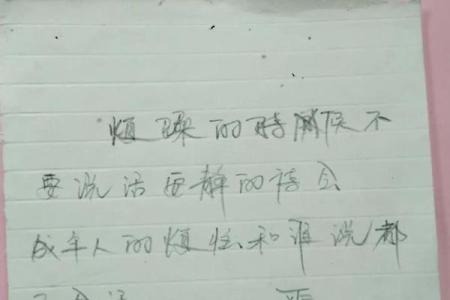 烦躁的时候不
要说话要静的待会
成年人的烦恼和谁说都